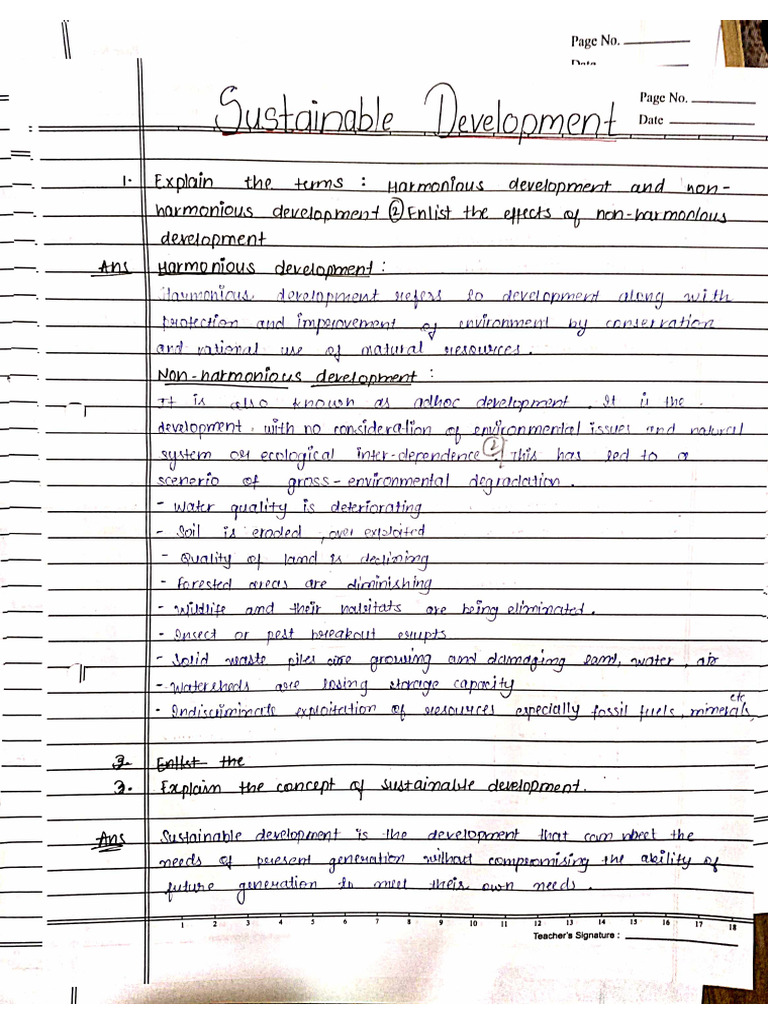 Page No.
Date
Page No.
Date
Sustainable Development
1. Explain the terms : Harmonious development and non-
harmonious development ② Enlist the effects of non-harmonious
development
Ans Harmonious development :
Harmonious development refers to development along with
protection and improvement of environment by conservation
and rational use of natural resources.
Non-harmonious development :
It is also known as adhoc development. It is the
development, with no consideration of environmental issues and natural
system or ecological inter-dependence ② . This has led to a
scenerio of gross-environmental degradation.
- Water quality is deteriorating
- Soil is eroded, over exploited
- Quality of land is declining
- Forested areas are diminishing
- Wildlife and their habitats are being eliminated.
- Insect or pest breakout erupts
- Solid waste piles are growing and damaging land, water, air
- Watersheds are losing storage capacity
- Indiscriminate exploitation of resources especially fossil fuels, minerals, etc
2. Enlist the
3. Explain the concept of sustainable development.
Ans Sustainable development is the development that can meet the
needs of present generation without compromising the ability of
future generation to meet their own needs.
1 2 3 4 5 6 7 8 9 10 11 12 13 14 15 16 17 18
Teacher's Signature :